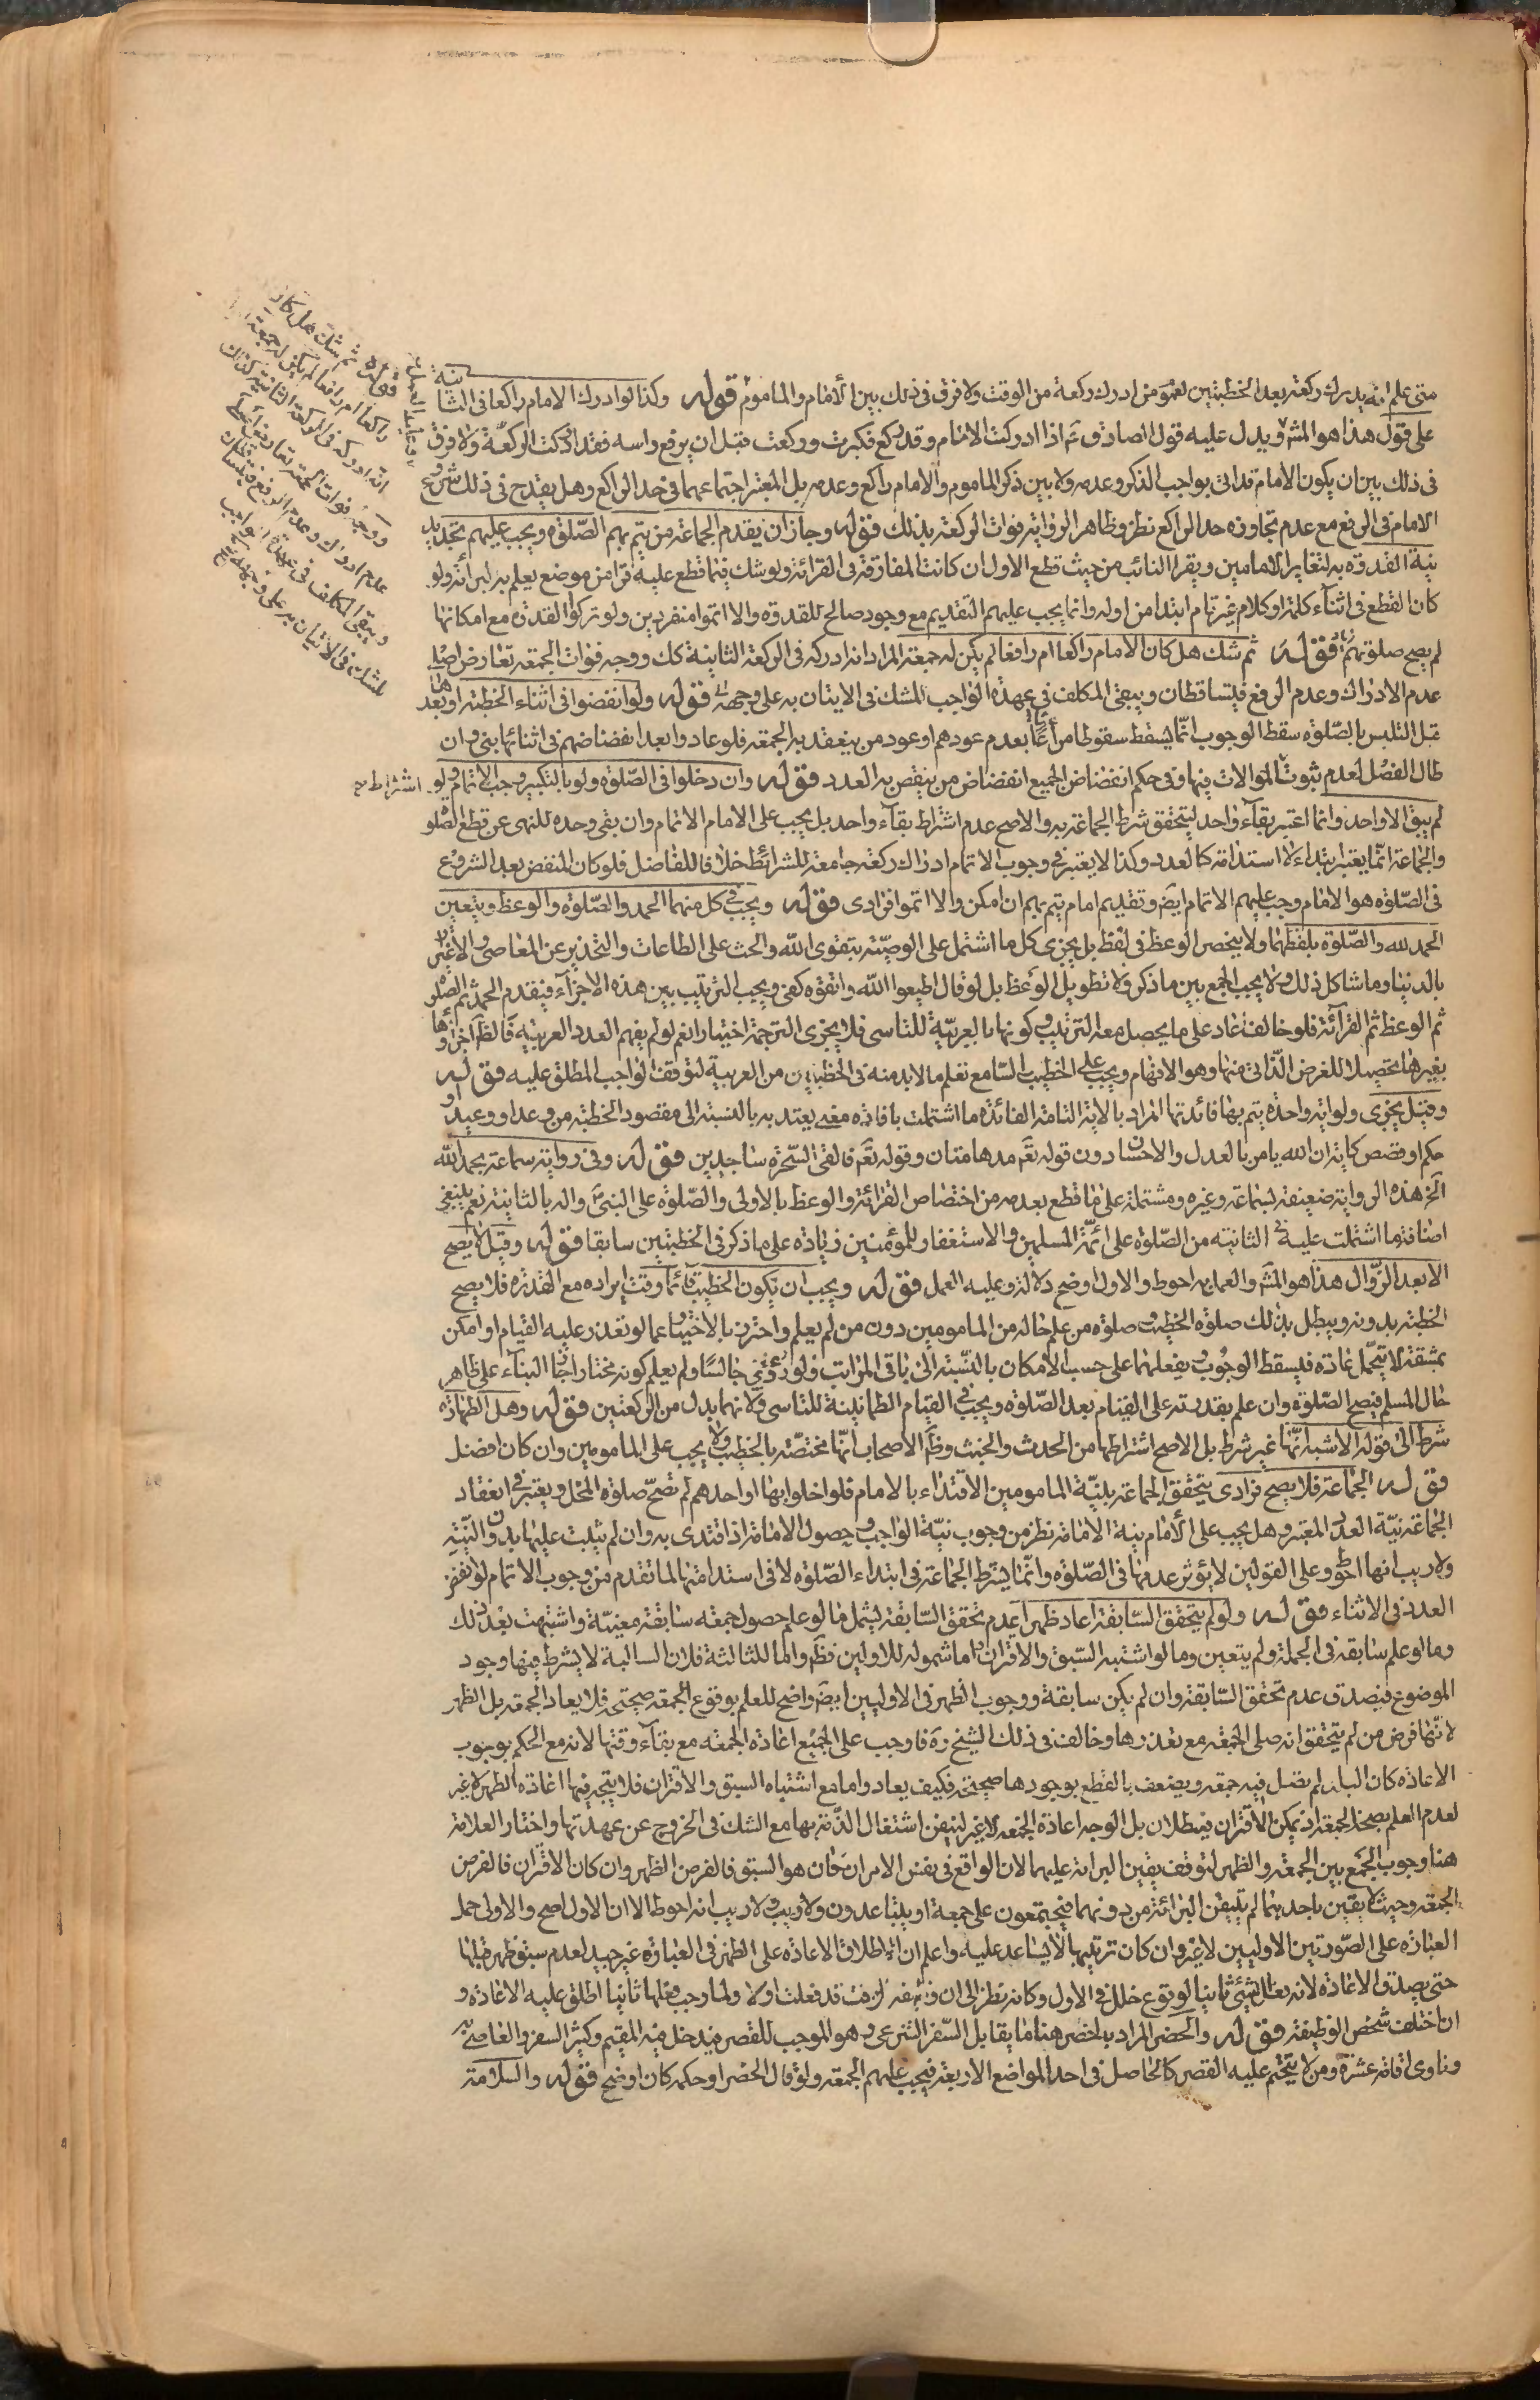 متى علم انه يدرك ركعة بعد الخطبتين لعموم من ادرك ركعة من الوقت ولا فرق فى ذلك بين الامام والماموم قوله وكذا لو ادرك الامام راكعا فى الثانية
على قول هذا هو المشهور ويدل عليه قول الصادق ع اذا ادركت الامام وقد ركع فكبرت وركعت قبل ان يرفع راسه فقد ادركت الركعة ولا فرق
فى ذلك بين ان يكون الامام قد اتى بواجب الذكر وعدمه ولا بين ذكر الماموم والامام راكع وعدمه بل المعتبر اجتماعهما فى حد الراكع وهل يقدح فى ذلك شروع
الامام فى الرفع مع عدم تجاوزه حد الراكع نظر وظاهر الرواية فوات الركعة بذلك قوله وجاز ان يقدم الجماعة من يتم بهم الصلوة ويجب عليهم تجديد
نية القدوة به لتغاير الامامين ويقرا النائب من حيث قطع الاول ان كانت المفارقة فى القرائة ولو شك فيما قطع عليه قرا من موضع يعلم به البرائة ولو
كان القطع فى اثناء كلمة او كلام غير تام ابتدا من اوله وانما يجب عليهم التقديم مع وجود صالح للقدوة والا اتموا منفردين ولو تركوا القدوة مع امكانها
لم يصح صلوتهم قوله ثم شك هل كان الامام راكعا ام رافعا لم يكن له جمعة المراد انه ادركه فى الركعة الثانية كك ووجه فوات الجمعة تعارض اصل
عدم الادراك وعدم الرفع فيتساقطان ويبقى المكلف فى عهدة الواجب للشك فى الاتيان به على وجهه قوله ولو انفضوا فى اثناء الخطبة او بعدها
قبل التلبس بالصلوة سقط الوجوب انما يسقط سقوطا مراعا بعدم عودهم او عود من ينعقد به الجمعة فلو عادوا بعد انفضاضهم فى اثنائها بنى وان
طال الفصل لعدم ثبوت اشتراط الموالات فيها وفى حكم انفضاض الجميع انفضاض من ينقص به العدد قوله وان دخلوا فى الصلوة ولو بالتكبير وجب الاتمام ولو
لم يبق الا واحد وانما اعتبر بقاء واحد ليتحقق شرط الجماعة به والاصح عدم اشتراط بقاء واحد بل يجب على الامام الاتمام وان بقى وحده للنهى عن قطع الصلوة
والجماعة انما يعتبر ابتداء لا استدامة كالعدد وكذا لا يعتبر فى وجوب الاتمام ادراك ركعة جامعة للشرائط خلافا للفاضل فلو كان المنفض بعد الشروع
فى الصلوة هو الامام وجب عليهم الاتمام ايضا وتقديم امام يتم بهم ان امكن والا اتموا فرادى قوله ويجب فى كل منهما الحمد والصلوة والوعظ ويتعين
الحمد لله والصلوة بلفظهما ولا ينحصر الوعظ فى لفظ بل يجزى كل ما اشتمل على الوصية بتقوى الله والحث على الطاعات والتحذير عن المعاصى والاغترار
بالدنيا وما شاكل ذلك ولا يجب الجمع بين ما ذكر ولا تطويل الوعظ بل لو قال اطيعوا الله واتقوه كفى ويجب الترتيب بين هذه الاجزاء فيقدم الحمد ثم الصلوة
ثم الوعظ ثم القرائة فلو خالف عاد على ما يحصل معه الترتيب وكونها بالعربية للتاسى فلا يجزى الترجمة اختيارا نعم لو لم يفهم العدد العربية فالظاهر اجزاؤها
بغيرها تحصيلا للغرض الذاتى منها وهو الافهام ويجب على الخطيب السامع تعلم ما لا بد منه فى الخطبتين من العربية لتوقف الواجب المطلق عليه قوله
وقيل يجزى ولو اية واحدة يتم بها فائدتها المراد بالاية التامة الفائدة ما اشتملت بافادة معنى يعتد به بالنسبة الى مقصود الخطبة من وعد او وعيد او
حكم او قصص كاية ان الله يامر بالعدل والاحسان دون قوله تع مدهامتان وقوله تع فالقى السحرة ساجدين قوله وفى رواية سماعة يحمد الله
الخ هذه الرواية ضعيفة بسماعة وغيره ومشتملة على ما قطع بعدمه من اختصاص القرائة والوعظ بالاولى والصلوة على النبى واله بالثانية نعم ينبغى
اضافة ما اشتملت عليه فى الثانية من الصلوة على ائمة المسلمين والاستغفار للمؤمنين زيادة على ما ذكر فى الخطبتين سابقا قوله وقيل لا يصح
الا بعد الزوال هذا هو المشهور والعمل به احوط والاول اوضح دلالة وعليه العمل قوله ويجب ان يكون الخطيب قائما وقت ايراده مع القدرة فلا يصح
الخطبة بدونه ويبطل بذلك صلوة الخطيب وصلوة من علم حاله من المامومين دون من لم يعلم واحترز بالاختيار عما لو تعذر عليه القيام او امكن
بمشقة لا تتحمل عادة فيسقط الوجوب ويفعلهما على حسب الامكان بالنسبة الى باقى المراتب ولو رؤى جالسا ولم يعلم كونه مختارا جاز البناء على ظاهر
حال المسلم فيصح الصلوة وان علم بقدرته على القيام بعد الصلوة ويجب فى القيام الطمانينة للتاسى ولانهما بدل من الركعتين قوله وهل الطهارة
شرط الى قوله الاشبه انها غير شرط بل الاصح اشتراطها من الحدث والخبث وظاهر الاصحاب انها مختصة بالخطيب ولا يجب على المامومين وان كان افضل
قوله الجماعة فلا يصح فرادى يتحقق الجماعة بنية المامومين الاقتداء بالامام فلو اخلوا بها او احدهم لم تصح صلوة المخل ويعتبر فى انعقاد
الجماعة نية العدد المعتبر وهل يجب على الامام نية الامامة نظر من وجوب نية الواجب وحصول الامامة اذا اقتدى به وان لم يثبت عليها بدون النية
ولا ريب انها احوط وعلى القولين لا يؤثر عدمها فى الصلوة وانما يشترط الجماعة فى ابتداء الصلوة لا فى استدامتها لما تقدم من وجوب الاتمام لو انفض
العدد فى الاثناء قوله ولو لم يتحقق السابقة اعاد ظهرا عدم تحقق السابقة يشمل ما لو علم حصول جمعة سابقة معينة واشتبهت بعد ذلك
وما لو علم سابقة فى الجملة ولم يتعين وما لو اشتبه السبق والاقتران اما شموله للاولين فظاهر واما للثالثة فلان السالبة لا يشترط فيها وجود
الموضوع فيصدق عدم تحقق السابقة وان لم يكن سابقة ووجوب الظهر فى الاوليين ايضا واضح للعلم بوقوع الجمعة صحيحة فلا يعاد الجمعة بل الظهر
لانها فرض من لم يتحقق انه صلى الجمعة مع تعذرها وخالف فى ذلك الشيخ ره فاوجب على الجميع اعادة الجمعة مع بقاء وقتها لانه مع الحكم بوجوب
الاعادة كان البلد لم تصل فيه جمعة ويضعف بالقطع بوجودها صحيحة فكيف يعاد واما مع اشتباه السبق والاقتران فلا يتجه فيها اعادة الظهر لا غير
لعدم العلم بصحة الجمعة اذ يمكن الاقتران فيبطلان بل الوجه اعادة الجمعة لا غير لتيقن اشتغال الذمة بها مع الشك فى الخروج عن عهدتها واختار العلامة
هنا وجوب الجمع بين الجمعة والظهر لتوقف يقين البراءة عليهما لان الواقع فى نفس الامر ان كان هو السبق فالفرض الظهر وان كان الاقتران فالفرض
الجمعة وحيث لا يقين باحديهما لم يتيقن البرائة من دونهما فيجتمعون على جمعة او يتباعدون ولا ريب انه احوط الا ان الاول اصح والاولى حمل
العبارة على الصورتين الاوليين لا غير وان كان ترتيبها لا يساعد عليه واعلم ان اطلاق الاعادة على الظهر فى العبارة غير جيد لعدم سبق ظهر قبلها
حتى يصدق الاعادة لانه فعل الشيء ثانيا لوقوع خلل فى الاول وكانه نظر الى ان وظيفة الوقت قد فعلت اولا ولما وجب فعلها ثانيا اطلق عليه الاعادة و
ان اختلف شخص الوظيفة قوله والحضر المراد بالحضر هنا ما يقابل السفر الشرعى وهو الموجب للقصر فيدخل فيه المقيم وكثير السفر والعاصى به
وناوى اقامة عشرة ومن لا يتحتم عليه القصر كالحاصل فى احد المواضع الاربعة فيجب عليهم الجمعة ولو قال الحضر او حكمه كان اوضح قوله والسلامة
قوله ثم شك هل كان
راكعا ام رافعا لم يكن له جمعة
انه ادركه فى الركعة الثانية كذلك
ووجه فوات الجمعة تعارض اصل
عدم ادراك وعدم الرفع فيتساقطان
ويبقى المكلف فى عهدة الواجب
للشك فى الاتيان به على وجهه
اشتراط صح